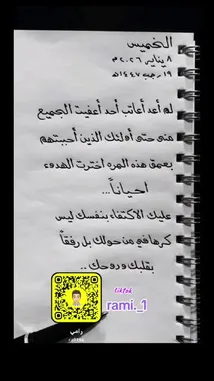 الخميس
٨ يناير ٢٠٢٦م
١٩ رجب ١٤٤٧هـ
لم أعد أعاتب أحد أعفيت الجميع
مني حتى أولئك الذين أحببتهم
بعمق هذه المره اخترت الهدوء
احياناً...
عليك الاكتفاء بنفسك ليس
كرهاً في من حولك بل رفقاً
بقلبك وروحك ..
TikTok
rami._1
رامي